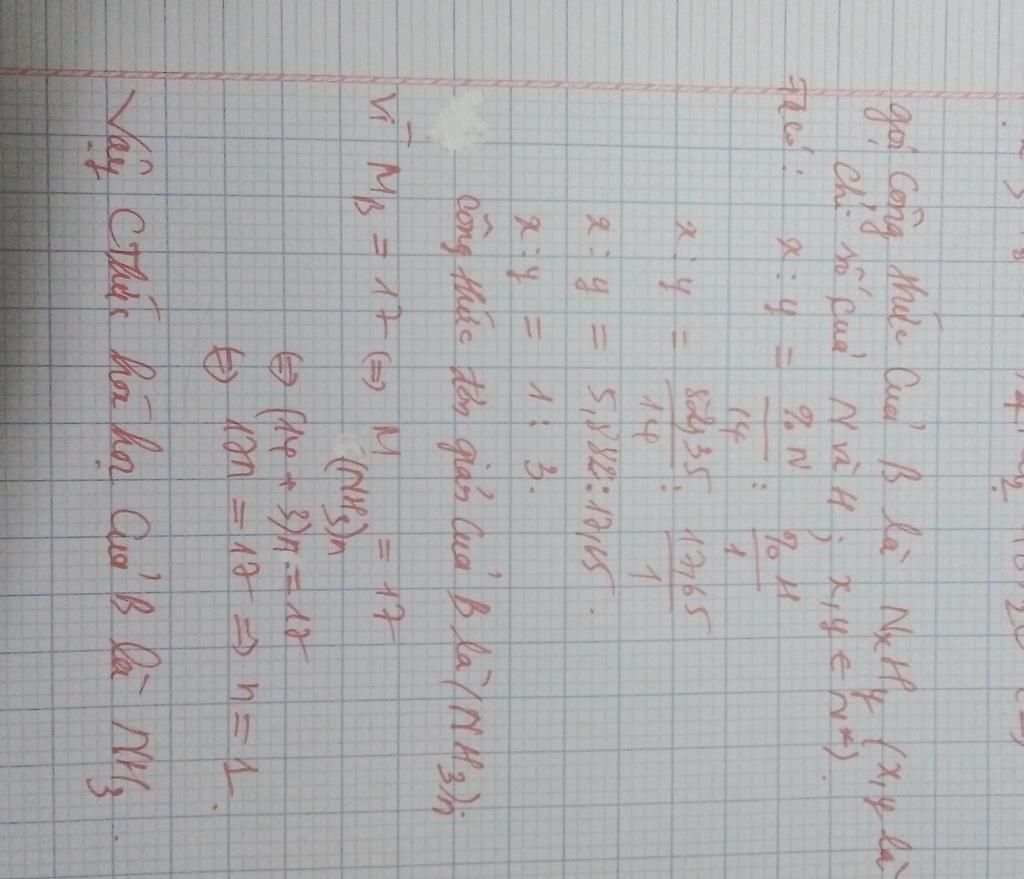 gọi công thức của B là NxHy (x,y là
chỉ số của N và H; x,y ∈ N*).
Ta có: x : y = %N/14 : %H/1
x : y = 82,35/14 : 17,65/1
x : y = 5,882 : 17,65.
x : y = 1 : 3.
công thức đơn giản của B là (NH3)n.
Vì MB = 17 (=) M(NH3)n = 17
(=) (14 + 3)n = 17
(=) 17n = 17 => n = 1.
Vậy CThức hoá học của B là NH3.